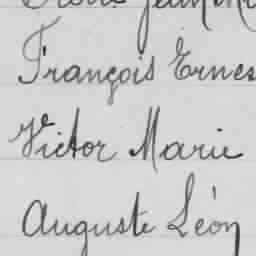 François Ernes
Victor Marie
Auguste Léon